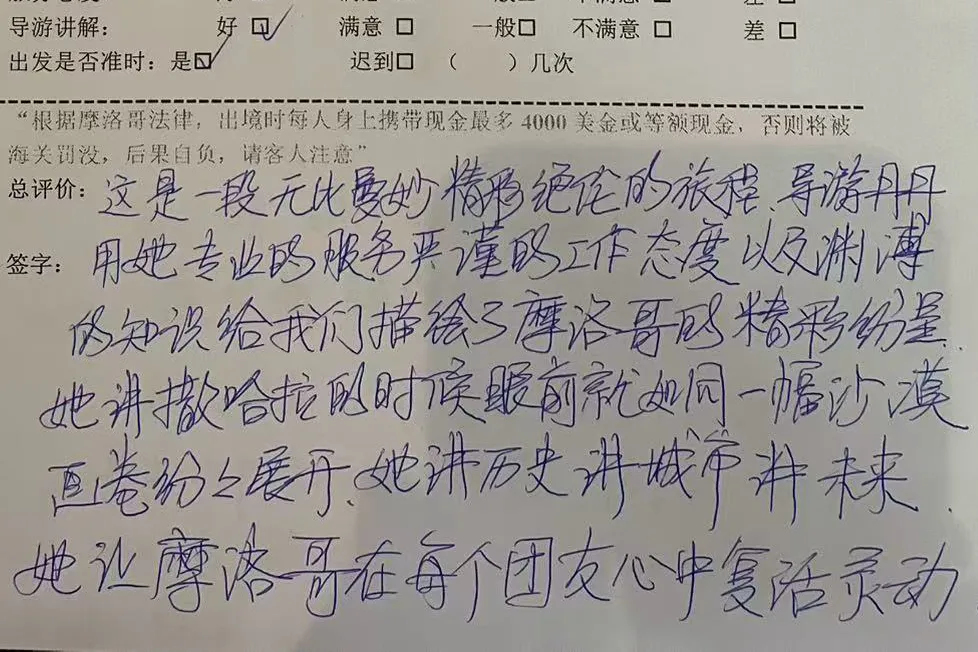 导游讲解： 好 ☑ 满意 □ 一般□ 不满意 □ 差 □
出发是否准时：是☑ 迟到□ （ ）几次
“根据摩洛哥法律，出境时每人身上携带现金最多 4000 美金或等额现金，否则将被
海关罚没，后果自负，请客人注意”
总评价：这是一段无比曼妙精彩绝伦的旅程、导游丹丹
签字：用她专业的服务严谨的工作态度以及渊溥
的知识给我们描绘了摩洛哥的精彩纷呈.
她讲撒哈拉的时候眼前就如同一幅沙漠
画卷纷纷展开、她讲历史讲城市讲未来.
她让摩洛哥在每个团友心中复活灵动